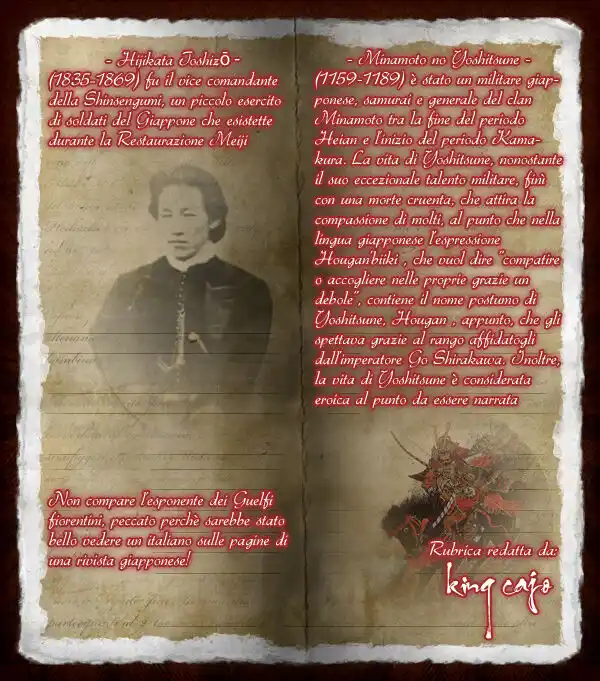 - Hijikata Toshizō -
(1835-1869) fu il vice comandante
della Shinsengumi, un piccolo esercito
di soldati del Giappone che esistette
durante la Restaurazione Meiji
Non compare l'esponente dei Guelfi
fiorentini, peccato perchè sarebbe stato
bello vedere un italiano sulle pagine di
una rivista giapponese!
- Minamoto no Yoshitsune -
(1159-1189) è stato un militare giap-
ponese, samurai e generale del clan
Minamoto tra la fine del periodo
Heian e l'inizio del periodo Kama-
kura. La vita di Yoshitsune, nonostante
il suo eccezionale talento militare, finì
con una morte cruenta, che attira la
compassione di molti, al punto che nella
lingua giapponese l'espressione
Hougan'biiki , che vuol dire "compatire
o accogliere nelle proprie grazie un
debole", contiene il nome postumo di
Yoshitsune, Hougan , appunto, che gli
spettava grazie al rango affidatogli
dall'imperatore Go Shirakawa. Inoltre,
la vita di Yoshitsune è considerata
eroica al punto da essere narrata
Rubrica redatta da:
king cajo